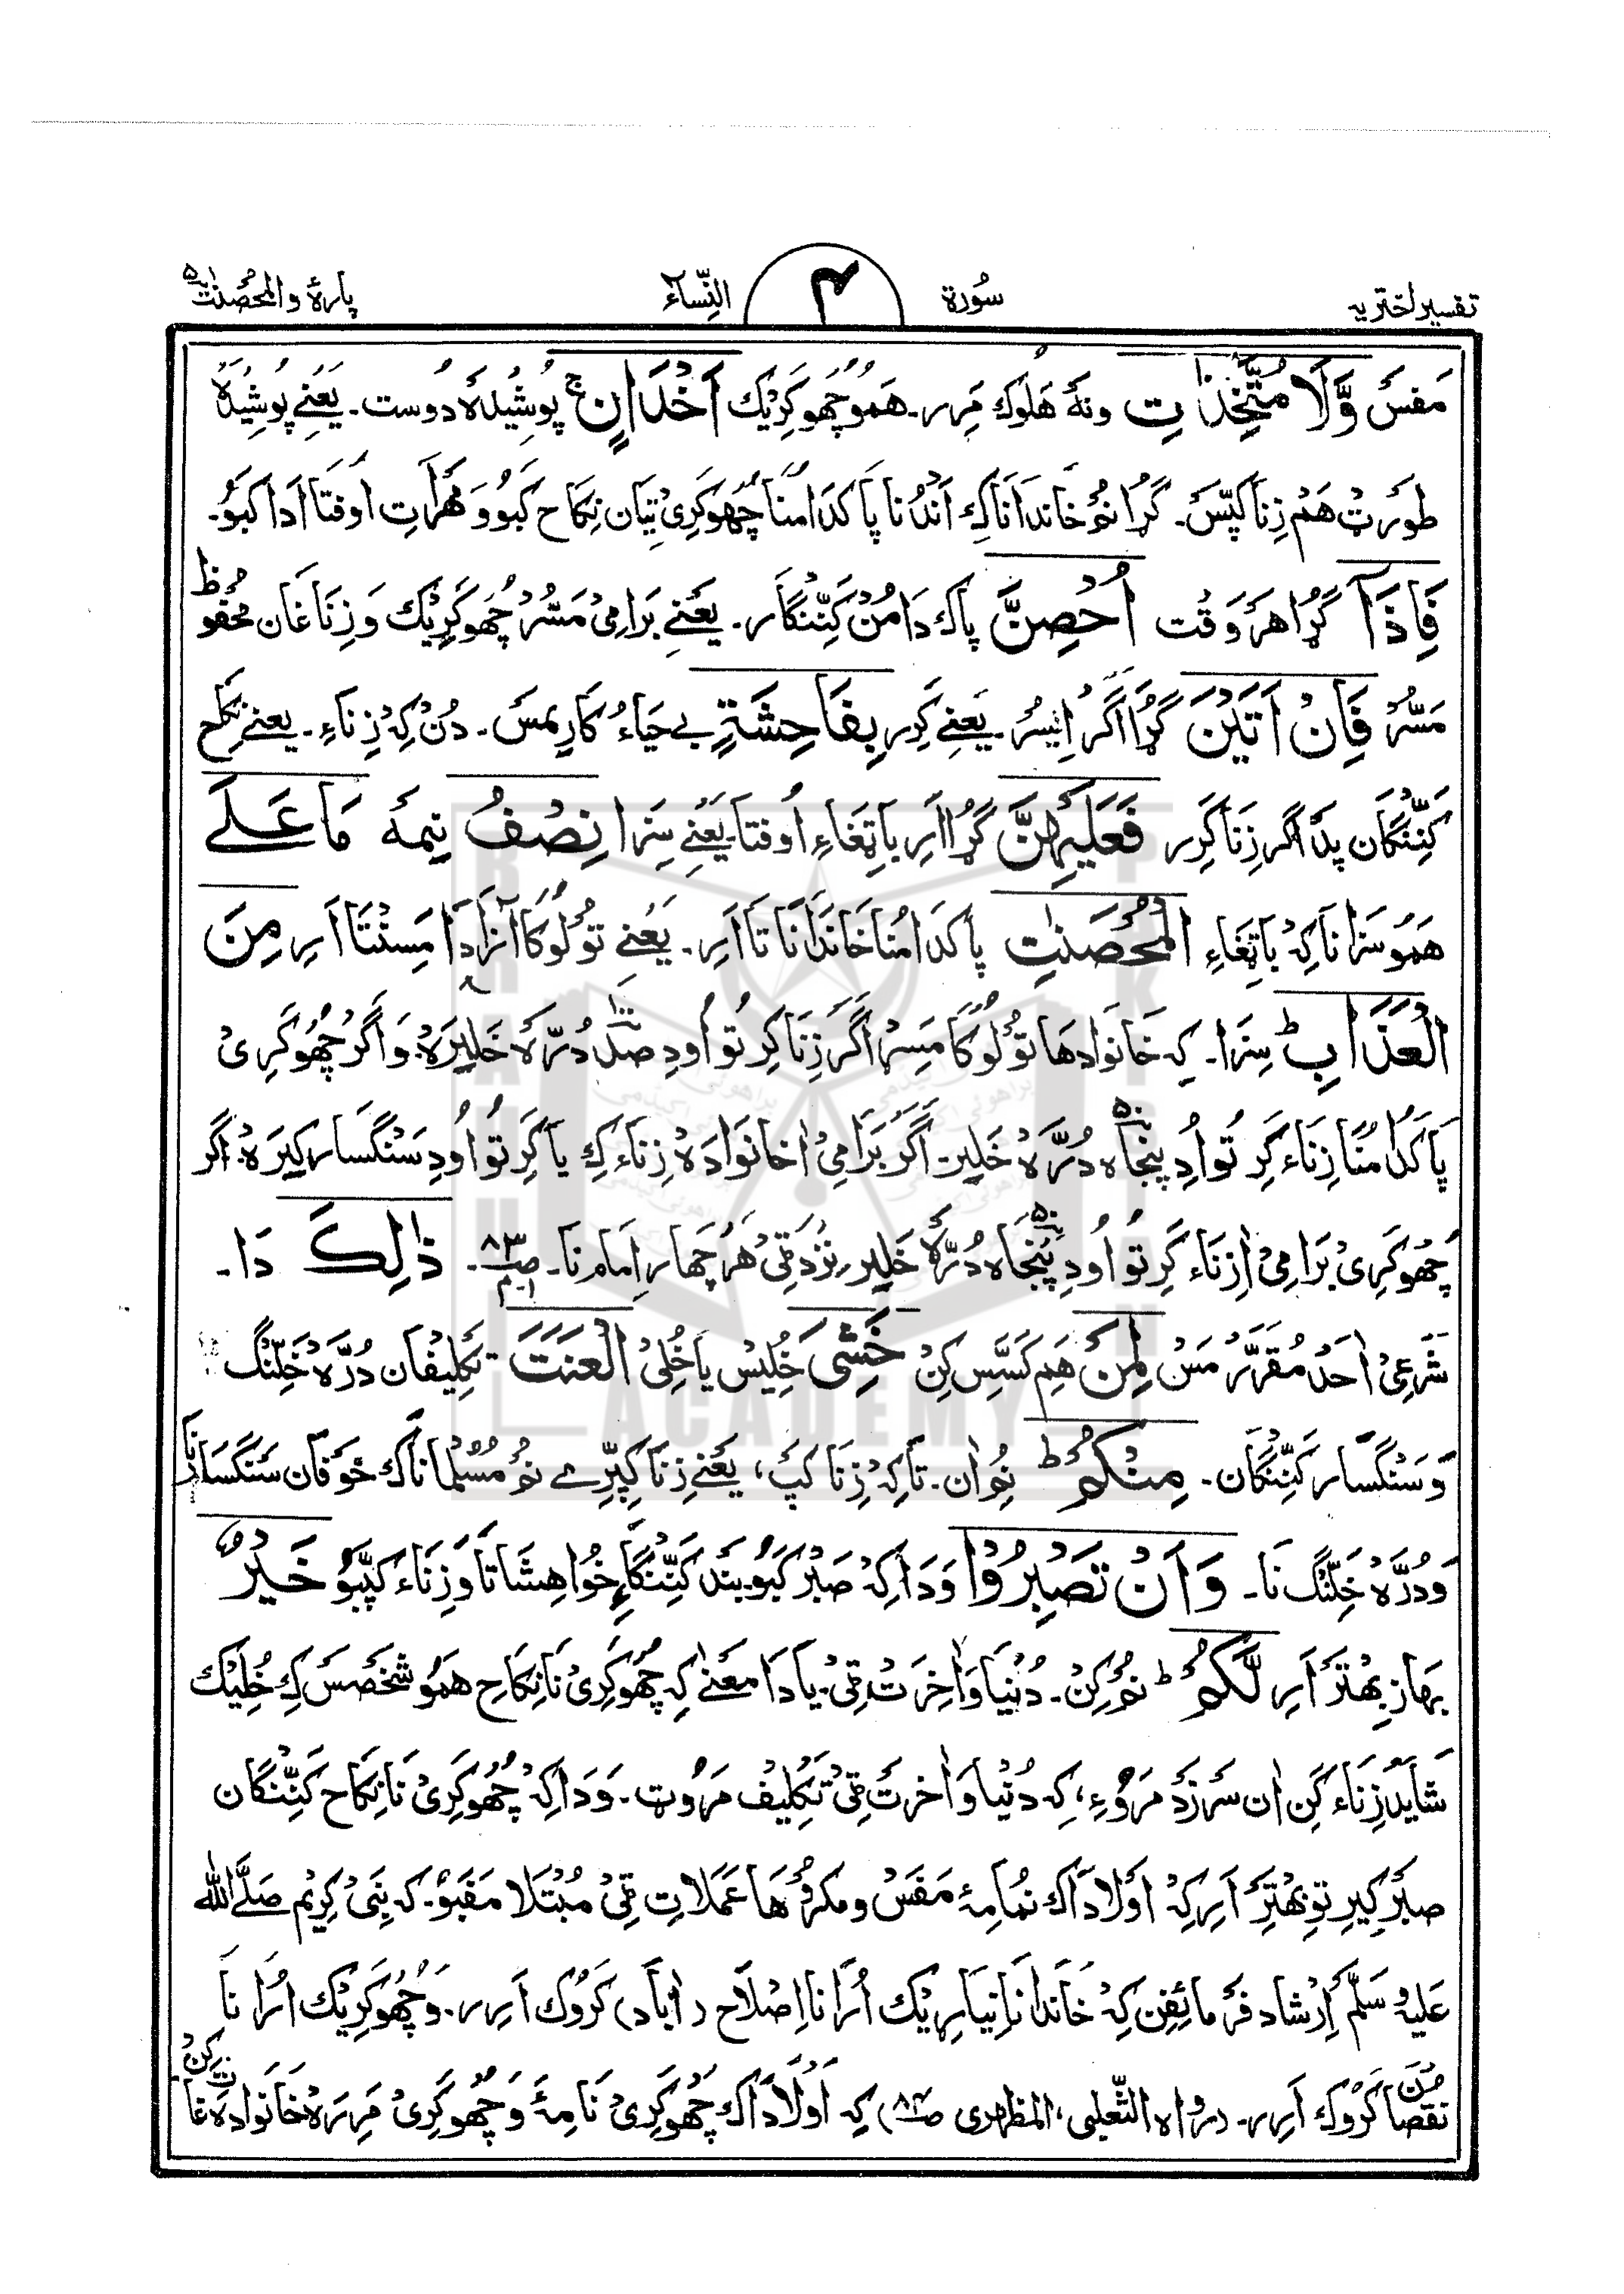 تفسیر اختریہ
سُورة
۴
النِّسَآء ۴
پارۂ والمحصنٰت ۵
مَفسَ وَّلَا مُتَّخِذَاتِ ونہَ هَلوک مَرِر۔ هَمو چھوکَرِیک اَخْدَانٍ ج پوشِیدہ ءُ دوست۔ یَعنِے پوشِیدہ
طَورَٹ هَم زِنا کپَّسَ۔ گُڑا نُم خاندانَاکِ اَندُنا پاکدامنا چھوکَرِی تِیان نِکاح کبو و مَهرَاتِ اوفتا اَدا کبو۔
فَاِذَآ گُڑا هَر وَقت اُحْصِنَّ پاک دَامُن کَنِّنگار۔ یَعنِے بَرامِی مَسُّر چھوکَرِیک وَ زِنَا غَان محفُوظ
مَسُّر فَاِنْ اَتَیْنَ گُڑا اگر اِیسُر۔ یَعنِے کَرِر بِفَاحِشَةٍ بے حَیاء کارِیمَسَ۔ دُن کِہ زِناء۔ یعنے نِکاح
کَنِّنگان پَد اگر زِنا کَرِر فَعَلَیْهِنَّ گُڑا اَرِ بَاتِغَاءِ اُوفتا۔ یَعنِے سِزا نِصْفُ نِیمہَ مَا عَلَے
هَمو سَزا نا کِہ بَاتِغَاءِ الْمُحْصَنٰتِ پاکدامنا خاندانَا تا اَرِ۔ یَعنِے تولوکا آزادا مَسِنتا اَرِ مِنَ
الْعَذَابِ ط سِزا۔ کِہ خانوادها تولوکا مَسِر اگر زِنا کرِ تو اُودِ صَد دُرَّہ خَلِیرَہ۔ وَ اگر چھوکَرِی
پاکدامنا زِناء کَرِ تو اُدِ پنجاہ ۵۰ دُرَّہ خَلِیر۔ اگر بَرامِی ا خانوادہ زِناء کِ یا کَرِ تو اُودِ سَنگسار کیرَہ۔ اگر
چھوکَرِی بَرامِی ا زِناء کَرِ تو اُودِ پنجاہ ۵۰ دُرَّہ خَلِیر نزد ٹی هَر چهار اِمام نا۔ ذٰلِکَ دَا۔
شَرعِی ا حَد مُقَرَّر مَس لِمَنْ هَم کَسَّس کِن خَشِیَ خُلِیس یا خُلِی الْعَنَتَ تکلِیفان دُرَّہ خَلِّنگ
وَ سَنگسار کَنِّنگان۔ مِنْکُمْ ط نُوان۔ تاکِہ زِنا کپ، یَعنِے زِنا کپّرے نُم مُسُلمانَاک خَوفان سَنگسار نا
وَ دُرَّہ خَلِّنگ نَا۔ وَاَنْ تَصْبِرُوْا وَ دَا کِہ صَبْر کَبو بند کَنِّنگا خُواهِشاتا وَ زِناء کپّبو خَیْرٌ
بهاز بِهتَر اَرِ لَّکُمْ ط نُم کِن۔ دُنیا وَ اٰخِرَت ٹی۔ یا دَا معنٰے کِہ چھوکَرِی نا نِکاح هَمو شَخصَس کِ خُلِیک
شَاید زِناء کَن ان سَرزَد مَروءِ، کِہ دُنیا وَ اٰخرَت ٹی تکلِیف مَروٹ۔ وَ دَا کِہ چھوکَرِی نا نِکاح کَنِّنگان
صبر کیرِ تو بِهتَر اَرِ کِہ اَولاداک نُمامِہ مَفَس و مکرُوها عَمَلات ٹی مُبتَلا مَفَبو۔ کِہ نَبِی کَرِیم صَلَّے اللہ
عَلیہِ وَسَلَّم اِرشاد فَرمائفِن کِہ خاندانا نِیارِیک اُرا نا اِصلَاح (آباد) کَروک اَرِر۔ وَ چھوکَرِیک اُرا نَا
نقصان کَروک اَرِر۔ (رواہ الثَّعلبی، المظهری صـ۸۴) کِہ اَولاداک چھوکَرِی نَا مِہ وَ چھوکَرِی مَرِرَہ خَانوادہ غا